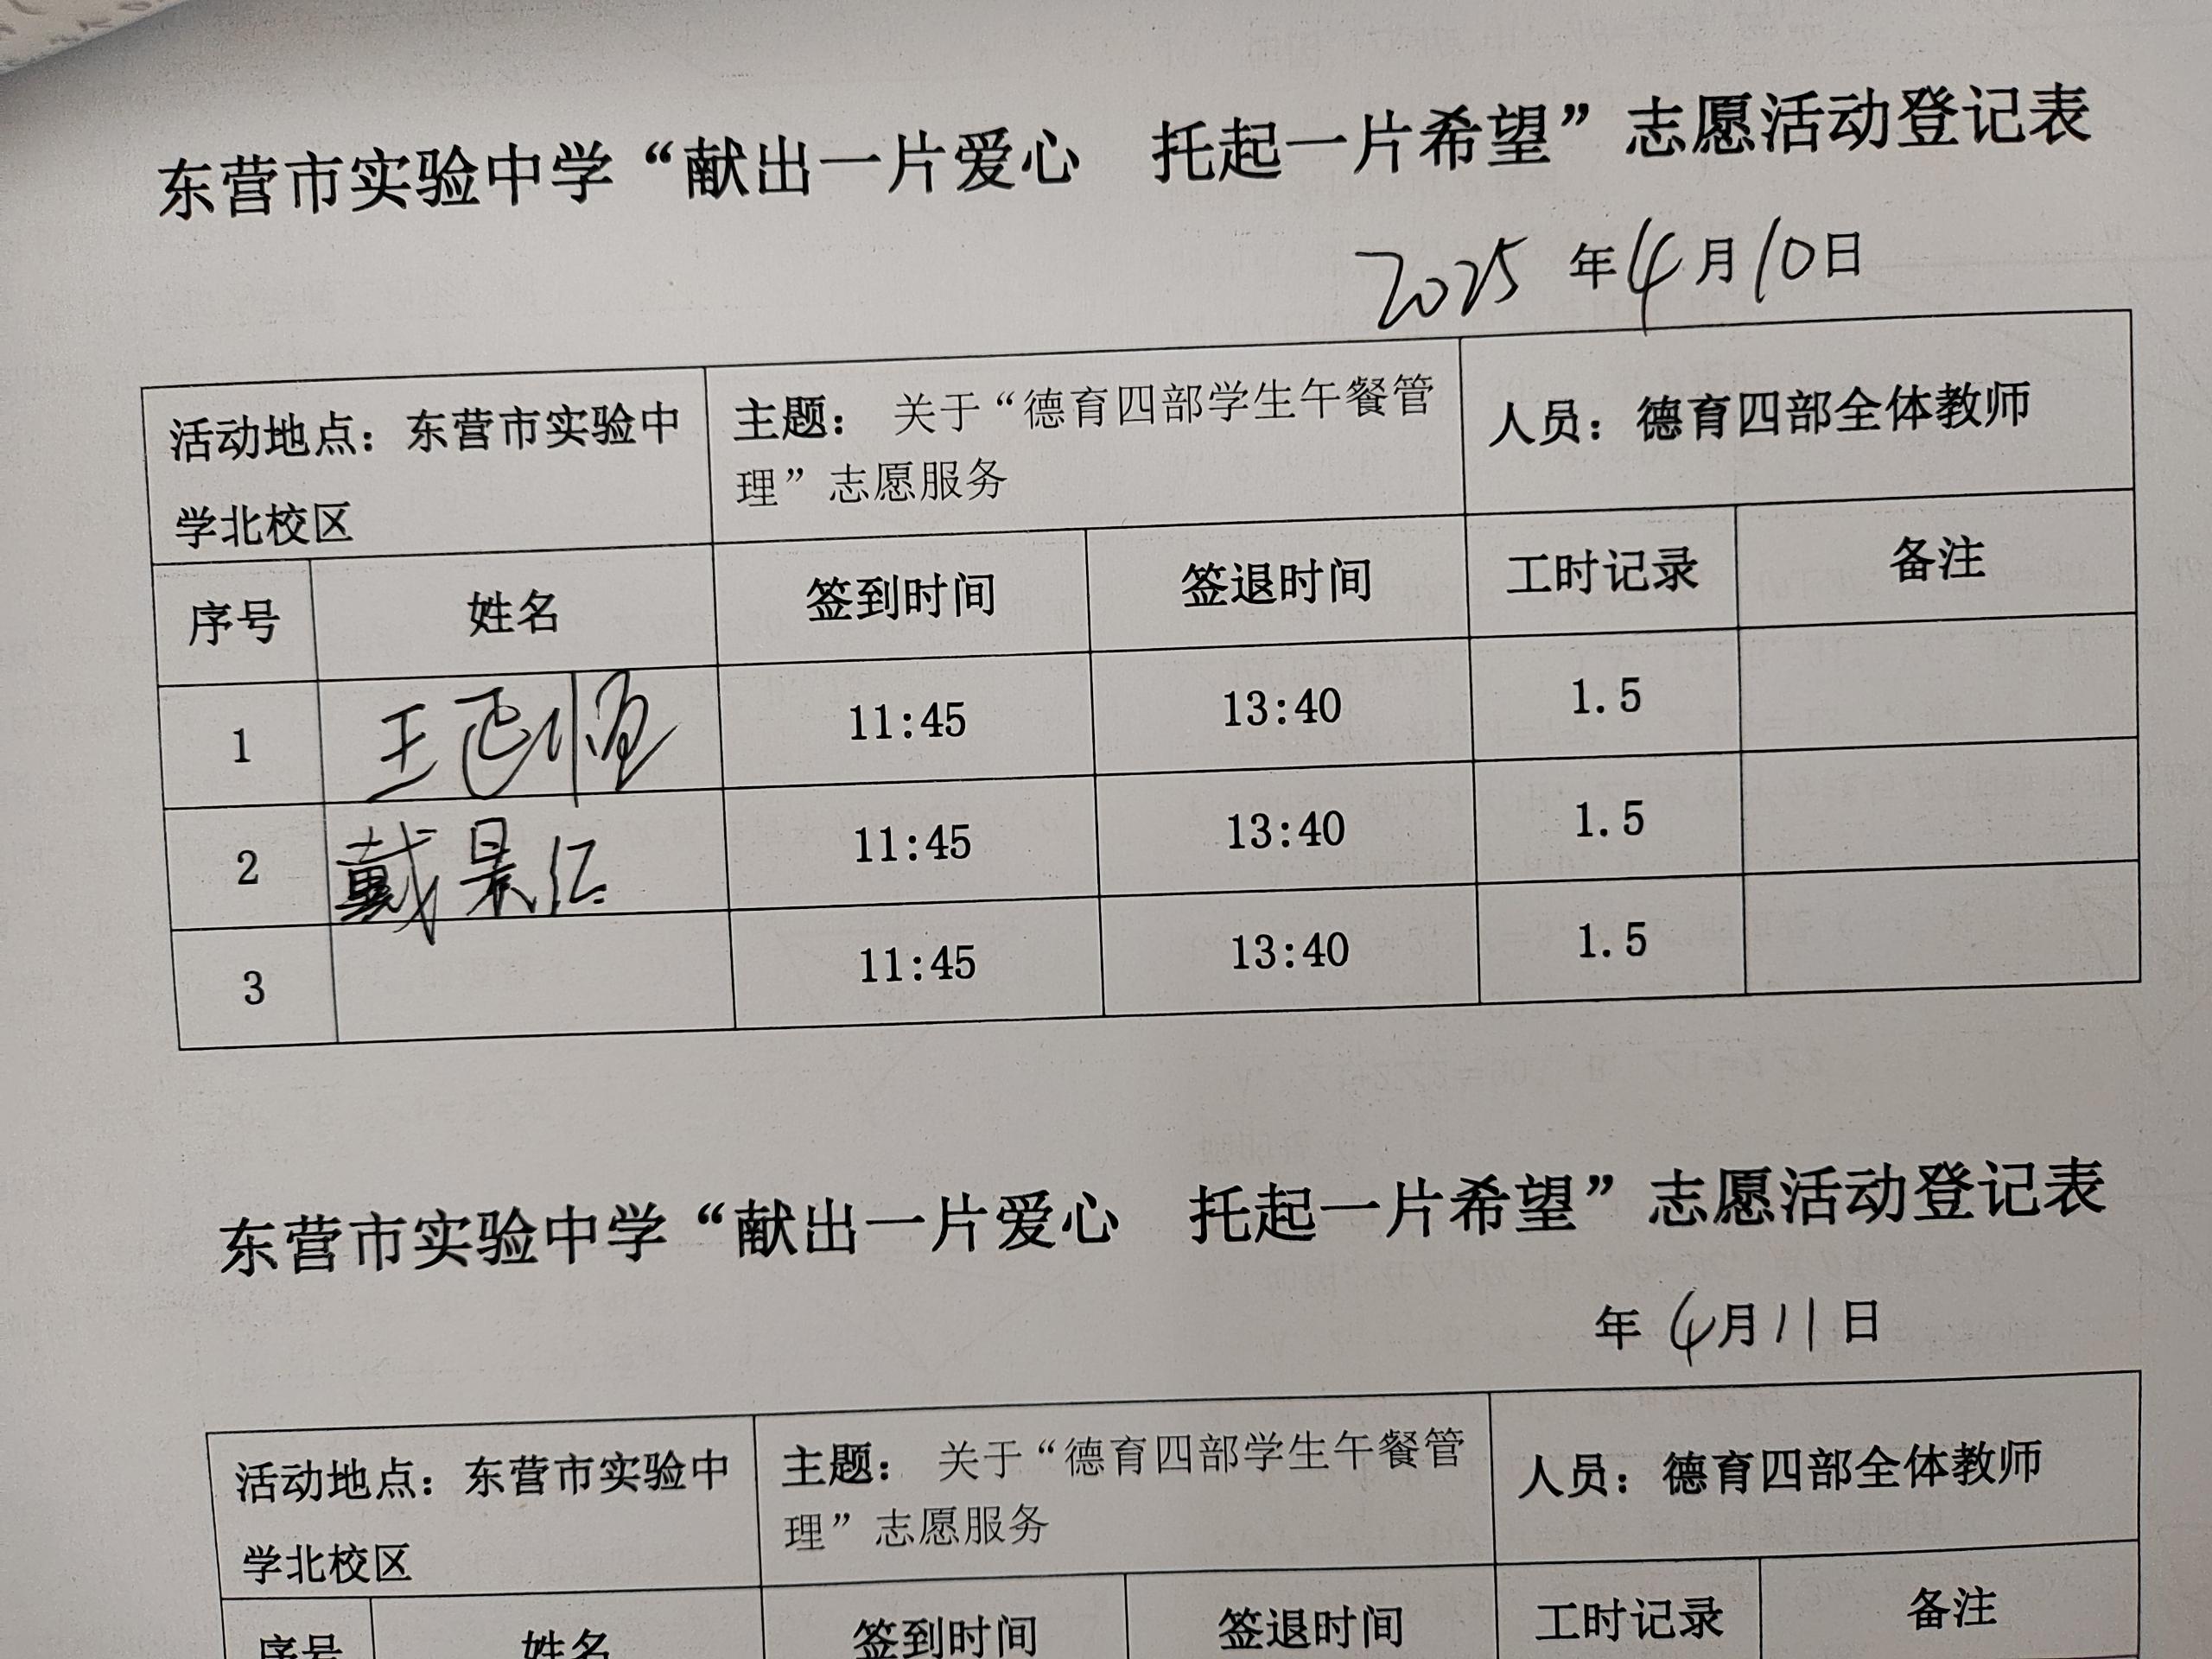 东营市实验中学“献出一片爱心 托起一片希望”志愿活动登记表
2025 年 4 月 10 日
活动地点：东营市实验中
学北校区
主题： 关于“德育四部学生午餐管
理”志愿服务
人员：德育四部全体教师
序号 姓名 签到时间 签退时间 工时记录 备注
1 王 11:45 13:40 1.5
2 戴景仁 11:45 13:40 1.5
3 11:45 13:40 1.5
东营市实验中学“献出一片爱心 托起一片希望”志愿活动登记表
年 4 月 11 日
活动地点：东营市实验中
学北校区
主题： 关于“德育四部学生午餐管
理”志愿服务
人员：德育四部全体教师
序号 姓名 签到时间 签退时间 工时记录 备注